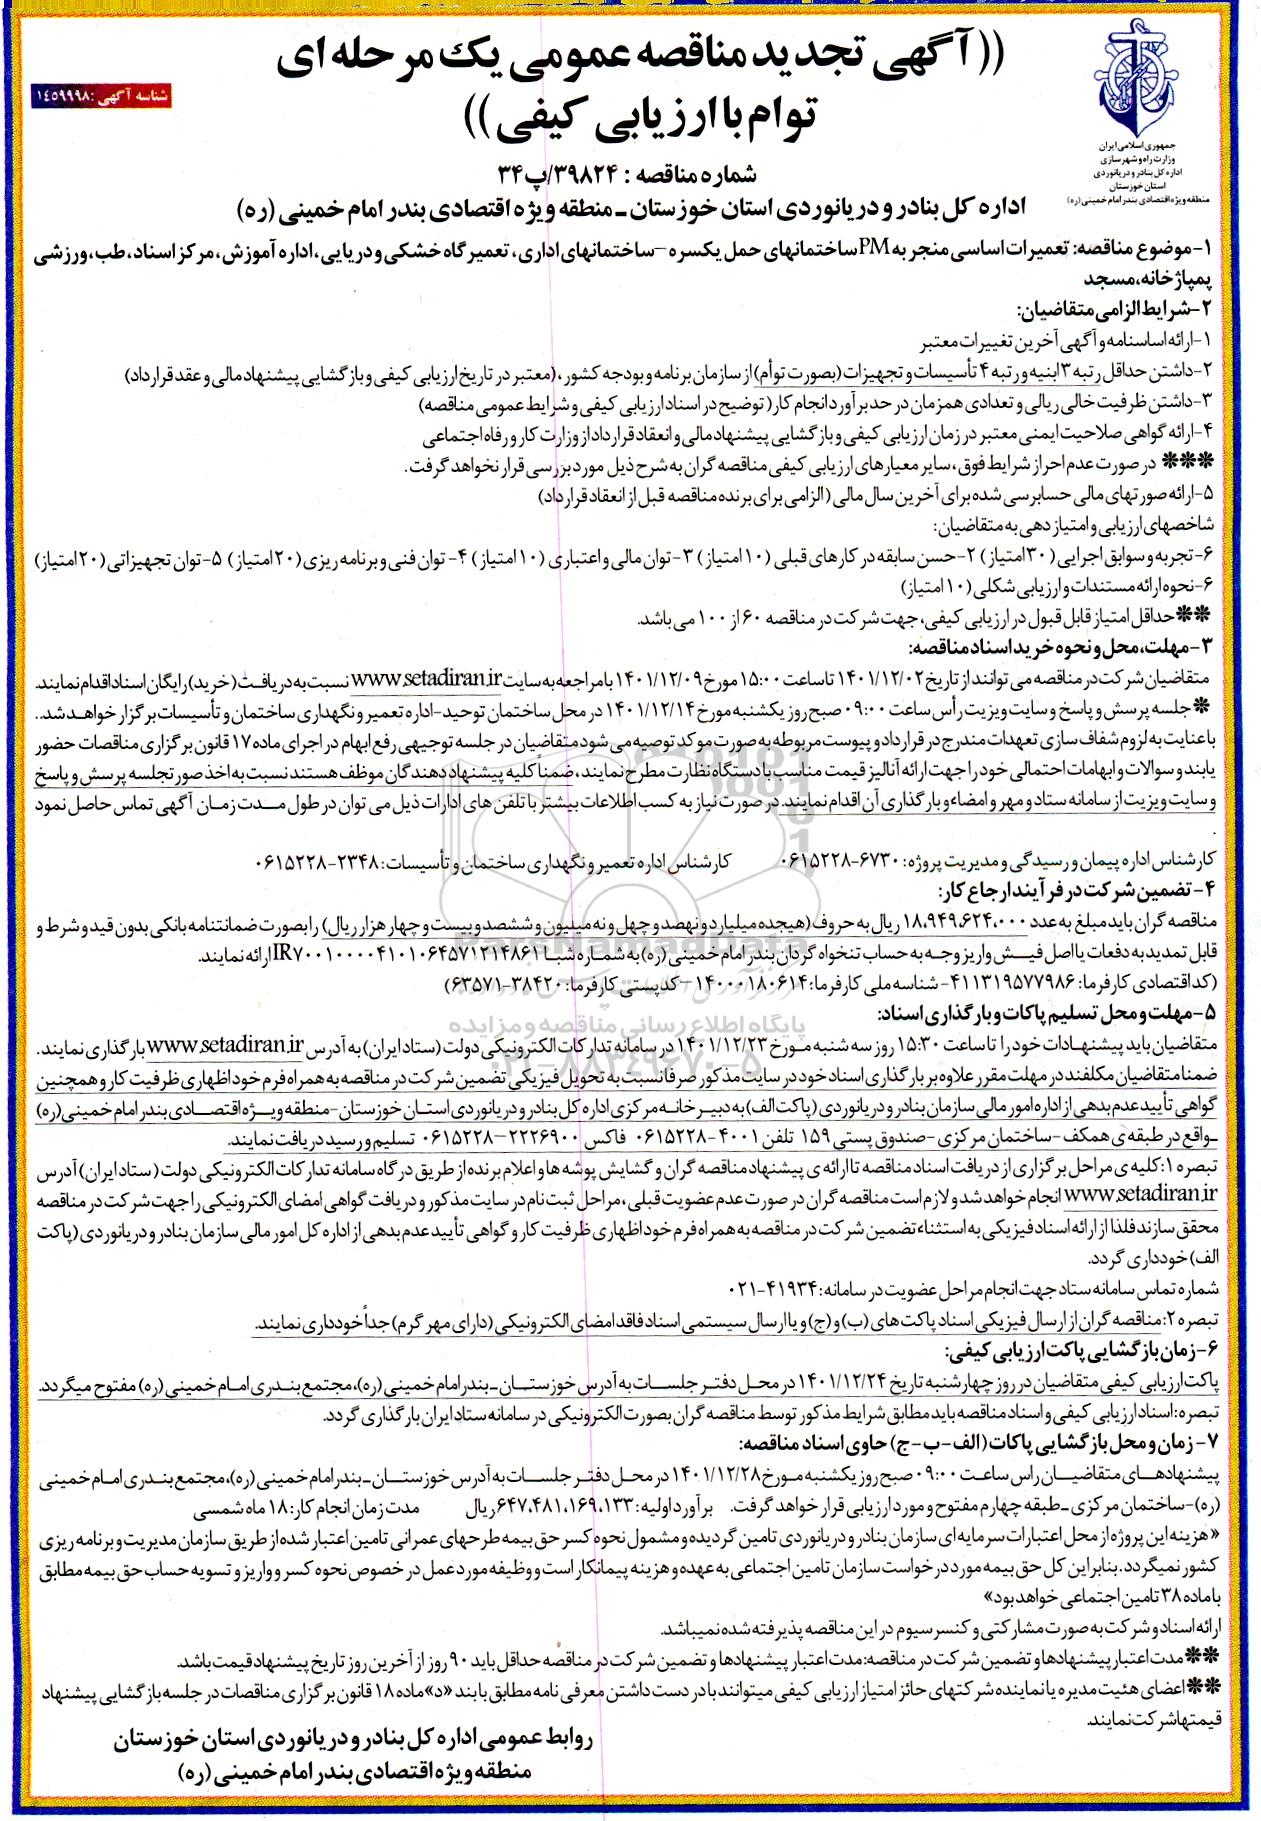 ((آگهی تجدید مناقصه عمومی یک مرحله ای
توام با ارزیابی کیفی))
شناسه آگهی :۱۴۵۹۹۹۸
جمهوری اسلامی ایران
وزارت راه و شهرسازی
اداره کل بنادر و دریانوردی
استان خوزستان
منطقه ویژه اقتصادی بندر امام خمینی (ره)
شماره مناقصه : ۳۹۸۲۴/پ۳۴
اداره کل بنادر و دریانوردی استان خوزستان ـ منطقه ویژه اقتصادی بندر امام خمینی (ره)
۱-موضوع مناقصه: تعمیرات اساسی منجر به PM ساختمانهای حمل یکسره –ساختمانهای اداری، تعمیرگاه خشکی و دریایی، اداره آموزش، مرکز اسناد، طب، ورزشی
پمپاژخانه، مسجد
۲-شرایط الزامی متقاضیان:
۱-ارائه اساسنامه و آگهی آخرین تغییرات معتبر
۲-داشتن حداقل رتبه ۳ ابنیه و رتبه ۴ تأسیسات و تجهیزات (بصورت توأم) از سازمان برنامه و بودجه کشور ، (معتبر در تاریخ ارزیابی کیفی و بازگشایی پیشنهاد مالی و عقد قرارداد)
۳-داشتن ظرفیت خالی ریالی و تعدادی همزمان در حد برآورد انجام کار ( توضیح در اسناد ارزیابی کیفی و شرایط عمومی مناقصه)
۴-ارائه گواهی صلاحیت ایمنی معتبر در زمان ارزیابی کیفی و بازگشایی پیشنهاد مالی و انعقاد قرارداد از وزارت کار و رفاه اجتماعی
❊❊❊ در صورت عدم احراز شرایط فوق، سایر معیارهای ارزیابی کیفی مناقصه گران به شرح ذیل مورد بررسی قرار نخواهد گرفت .
۵-ارائه صورتهای مالی حسابرسی شده برای آخرین سال مالی (الزامی برای برنده مناقصه قبل از انعقاد قرارداد)
شاخصهای ارزیابی و امتیاز دهی به متقاضیان:
۶-تجربه و سوابق اجرایی (۳۰امتیاز) ۲-حسن سابقه در کارهای قبلی (۱۰امتیاز) ۳-توان مالی و اعتباری (۱۰امتیاز) ۴- توان فنی و برنامه ریزی(۲۰امتیاز) ۵-توان تجهیزاتی (۲۰امتیاز)
۶-نحوه ارائه مستندات و ارزیابی شکلی (۱۰ امتیاز)
❊❊حداقل امتیاز قابل قبول در ارزیابی کیفی، جهت شرکت در مناقصه ۶۰ از ۱۰۰ می باشد.
۳-مهلت، محل و نحوه خرید اسناد مناقصه:
متقاضیان شرکت در مناقصه می توانند از تاریخ ۱۴۰۱/۱۲/۰۲ تا ساعت ۱۵:۰۰ مورخ ۱۴۰۱/۱۲/۰۹ با مراجعه به سایت www.setadiran.ir نسبت به دریافت (خرید) رایگان اسناد اقدام نمایند.
❊ جلسه پرسش و پاسخ و سایت ویزیت رأس ساعت ۰۹:۰۰ صبح روز یکشنبه مورخ ۱۴۰۱/۱۲/۱۴ در محل ساختمان توحید-اداره تعمیر و نگهداری ساختمان و تأسیسات برگزار خواهد شد. .
با عنایت به لزوم شفاف سازی تعهدات مندرج در قرارداد و پیوست مربوطه به صورت موکد توصیه می شود متقاضیان در جلسه توجیهی رفع ابهام در اجرای ماده ۱۷ قانون برگزاری مناقصات حضور
یابند و سوالات و ابهامات احتمالی خود را جهت ارائه آنالیز قیمت مناسب با دستگاه نظارت مطرح نمایند، ضمناً کلیه پیشنهاد دهندگان موظف هستند نسبت به اخذ صورتجلسه پرسش و پاسخ
و سایت ویزیت از سامانه ستاد و مهر و امضاء و بارگذاری آن اقدام نمایند. در صورت نیاز به کسب اطلاعات بیشتر با تلفن های ادارات ذیل می توان در طول مدت زمان آگهی تماس حاصل نمود
.
کارشناس اداره پیمان و رسیدگی و مدیریت پروژه: ۶۷۳۰-۰۶۱۵۲۲۸ کارشناس اداره تعمیر و نگهداری ساختمان و تأسیسات: ۲۳۴۸-۰۶۱۵۲۲۸
۴- تضمین شرکت در فرآیند ارجاع کار:
مناقصه گران باید مبلغ به عدد ۱۸،۹۴۹،۶۲۴،۰۰۰ ریال به حروف (هیجده میلیارد و نهصد و چهل و نه میلیون و ششصد و بیست و چهار هزار ریال) را بصورت ضمانتنامه بانکی بدون قید و شرط و
قابل تمدید به دفعات یا اصل فیش واریز وجه به حساب تنخواه گردان بندر امام خمینی (ره) به شماره شبا IR۷۰۰۱۰۰۰۰۴۱۰۱۰۶۴۵۷۱۲۱۴۸۶۱ ارائه نمایند.
(کد اقتصادی کارفرما: ۴۱۱۳۱۹۵۷۷۹۸۶- شناسه ملی کارفرما: ۱۴۰۰۰۱۸۰۶۱۴ –کدپستی کارفرما: ۳۸۴۲۰-۶۳۵۷۱)
۵-مهلت و محل تسلیم پاکات و بارگذاری اسناد:
متقاضیان باید پیشنهادات خود را تا ساعت ۱۵:۳۰ روز سه شنبه مورخ ۱۴۰۱/۱۲/۲۳ در سامانه تدارکات الکترونیکی دولت (ستاد ایران) به آدرس www.setadiran.ir بارگذاری نمایند.
ضمنا متقاضیان مکلفند در مهلت مقرر علاوه بر بارگذاری اسناد خود در سایت مذکور صرفا نسبت به تحویل فیزیکی تضمین شرکت در مناقصه به همراه فرم خود اظهاری ظرفیت کار و همچنین
گواهی تأیید عدم بدهی از اداره امور مالی سازمان بنادر و دریانوردی (پاکت الف) به دبیرخانه مرکزی اداره کل بنادر و دریانوردی استان خوزستان-منطقه ویژه اقتصادی بندر امام خمینی(ره)
ـواقع در طبقه ی همکف-ساختمان مرکزی –صندوق پستی ۱۵۹ تلفن ۴۰۰۱-۰۶۱۵۲۲۸ فاکس ۲۲۲۶۹۰۰–۰۶۱۵۲۲۸ تسلیم و رسید دریافت نمایند.
تبصره ۱:کلیه ی مراحل برگزاری از دریافت اسناد مناقصه تا ارائه ی پیشنهاد مناقصه گران و گشایش پوشه ها و اعلام برنده از طریق درگاه سامانه تدارکات الکترونیکی دولت (ستاد ایران) آدرس
www.setadiran.ir انجام خواهد شد و لازم است مناقصه گران در صورت عدم عضویت قبلی، مراحل ثبت نام در سایت مذکور و دریافت گواهی امضای الکترونیکی را جهت شرکت در مناقصه
محقق سازند فلذا از ارائه اسناد فیزیکی به استثناء تضمین شرکت در مناقصه به همراه فرم خود اظهاری ظرفیت کار و گواهی تأیید عدم بدهی از اداره کل امور مالی سازمان بنادر و دریانوردی (پاکت
الف) خودداری گردد.
شماره تماس سامانه ستاد جهت انجام مراحل عضویت در سامانه: ۴۱۹۳۴-۰۲۱
تبصره ۲: مناقصه گران از ارسال فیزیکی اسناد پاکت های (ب) و (ج) و یا ارسال سیستمی اسناد فاقد امضای الکترونیکی (دارای مهر گرم) جداً خودداری نمایند.
۶-زمان بازگشایی پاکت ارزیابی کیفی:
پاکت ارزیابی کیفی متقاضیان در روز چهارشنبه تاریخ ۱۴۰۱/۱۲/۲۴ در محل دفتر جلسات به آدرس خوزستان ـ بندر امام خمینی (ره)، مجتمع بندری امام خمینی (ره) مفتوح میگردد.
تبصره: اسناد ارزیابی کیفی و اسناد مناقصه باید مطابق شرایط مذکور توسط مناقصه گران بصورت الکترونیکی در سامانه ستاد ایران بارگذاری گردد.
۷- زمان و محل بازگشایی پاکات (الف-ب-ج) حاوی اسناد مناقصه:
پیشنهادهای متقاضیان راس ساعت ۰۹:۰۰ صبح روز یکشنبه مورخ ۱۴۰۱/۱۲/۲۸ در محل دفتر جلسات به آدرس خوزستان ـ بندر امام خمینی (ره)، مجتمع بندری امام خمینی
(ره)-ساختمان مرکزی ـ طبقه چهارم مفتوح و مورد ارزیابی قرار خواهد گرفت. برآورد اولیه: ۶۴۷،۴۸۱،۱۶۹،۱۳۳ ریال مدت زمان انجام کار: ۱۸ ماه شمسی
«هزینه این پروژه از محل اعتبارات سرمایه ای سازمان بنادر و دریانوردی تامین گردیده و مشمول نحوه کسر حق بیمه طرحهای عمرانی تامین اعتبار شده از طریق سازمان مدیریت و برنامه ریزی
کشور نمیگردد . بنابراین کل حق بیمه مورد درخواست سازمان تامین اجتماعی به عهده و هزینه پیمانکار است و وظیفه مورد عمل در خصوص نحوه کسر و واریز و تسویه حساب حق بیمه مطابق
با ماده ۳۸ تامین اجتماعی خواهد بود»
ارائه اسناد و شرکت به صورت مشارکتی و کنسرسیوم در این مناقصه پذیرفته شده نمیباشد.
❊❊مدت اعتبار پیشنهادها و تضمین شرکت در مناقصه: مدت اعتبار پیشنهادها و تضمین شرکت در مناقصه حداقل باید ۹۰ روز از آخرین روز تاریخ پیشنهاد قیمت باشد.
❊❊اعضای هئیت مدیره یا نماینده شرکتهای حائز امتیاز ارزیابی کیفی میتوانند با در دست داشتن معرفی نامه مطابق با بند «د» ماده ۱۸ قانون برگزاری مناقصات در جلسه بازگشایی پیشنهاد
قیمتها شرکت نمایند.
روابط عمومی اداره کل بنادر و دریانوردی استان خوزستان
منطقه ویژه اقتصادی بندر امام خمینی (ره)
ParsNamadData
پایگاه اطلاع رسانی مناقصه و مزایده
۰۲۱-۸۸۳۴۹۶۷۰-۵